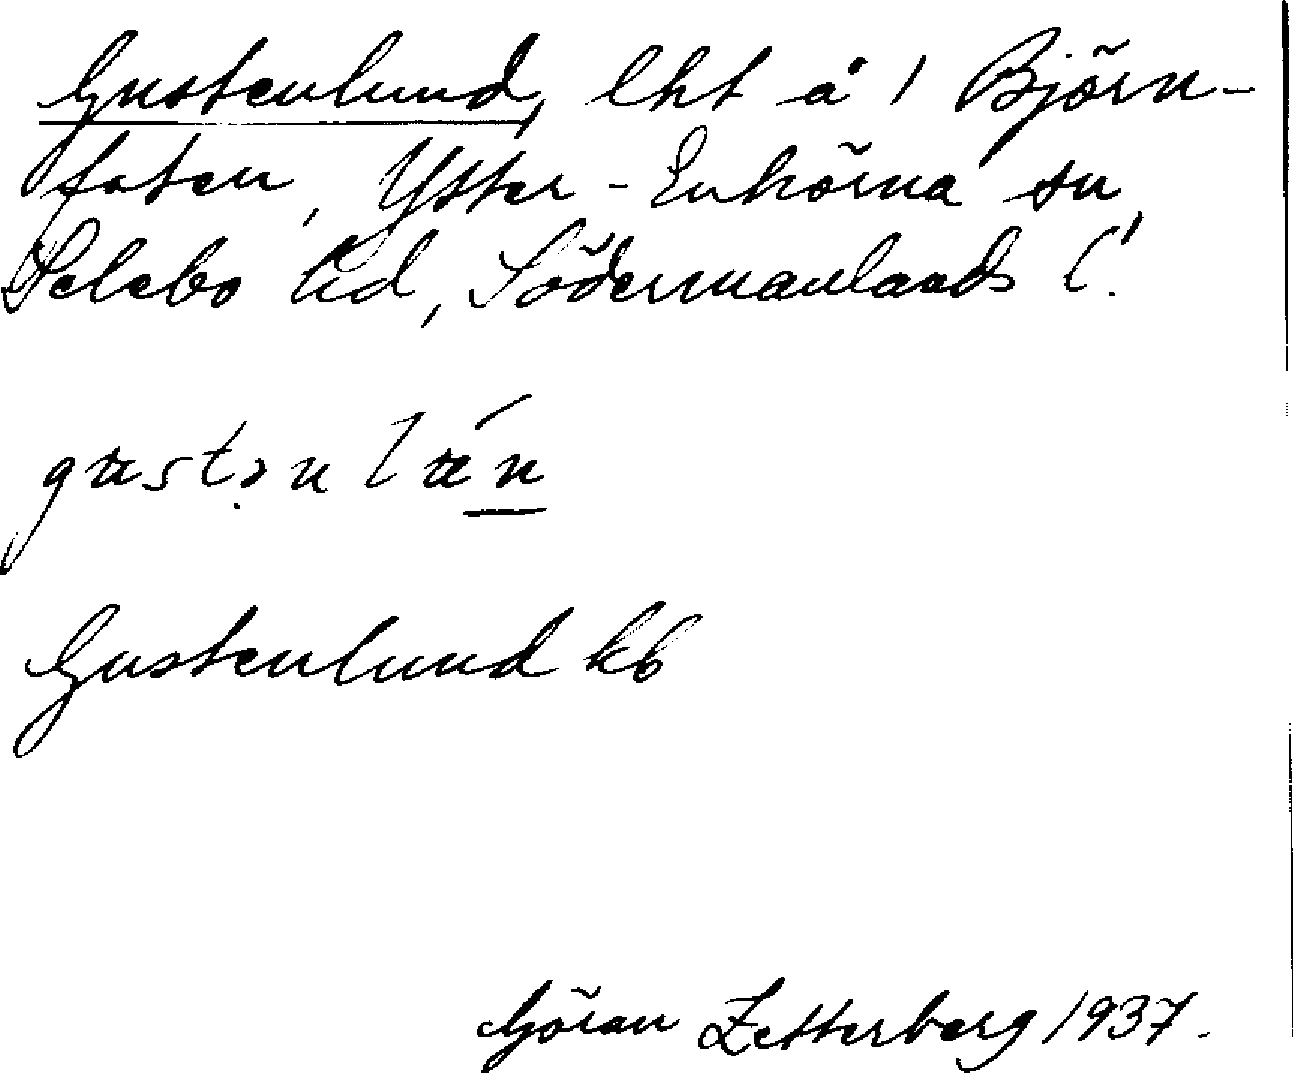 Gustenlund, lht å 1 Björn-
foten, Ytter-Enhörna sn,
Selebo hd, Södermanlands l.
Gustenlund kb
Göran Zetterberg 1937.